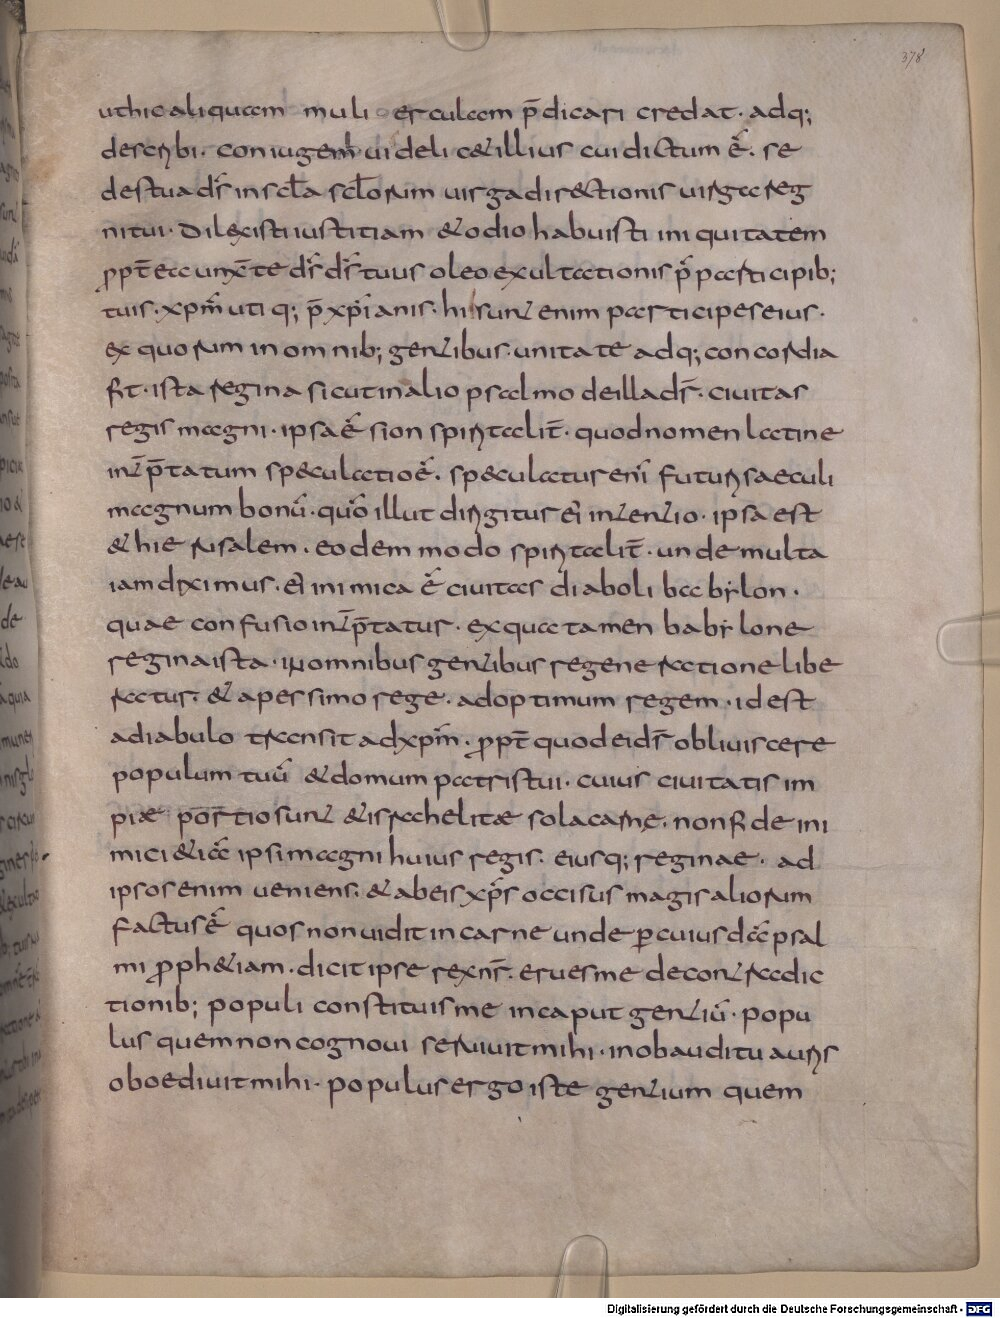 378
uthic aliquam muli erculam p̄dicari credat · adq;
describi · coniugem uideli cet illius cui dictum ē · se
des tua ds̄ in scl̄a scl̄orum uirga directionis uirga reg
ni tui · Dilexisti iustitiam & odio habuisti iniquitatem
ꝓpt̄ea unx̄ te ds̄ ds̄ tuus oleo exultationis p̄ participib;
tuis · xp̄m̄ utiq; p̄ xp̄ianis · hi sunt enim participes eius ·
ex quorum in omnib; gentibus · unitate adq; concordia
fit · ista regina sicut in alio psalmo de illa ds̄ · ciuitas
regis magni · ipsa ē sion spiritalit̄ · quod nomen latine
int̄p̄tatum speculatio ē · speculatur enī futuri saeculi
magnum bonū · quō illut dirigitur eī intentio · ipsa est
& hierusalem · eodem modo spiritalit̄ · unde multa
iam diximus · eī inimica ē ciuitas diaboli babylon ·
quae confusio int̄p̄tatur · ex qua tamen babylone
regina ista · in omnibus gentibus regeneratione libe
ratur · & a pessimo rege · ad optimum regem · id est
a diabulo transit ad xp̄m · ꝓpt̄ quod ei ds̄ obliuiscere
populum tuū & domum patris tui · cuius ciuitatis im
piae portio sunt & israhelitae sola carne · non fide ini
mici & iā ipsi magni huius regis · eiusq; reginae · ad
ipsos enim ueniens · & ab eis xp̄s occisus magis aliorum
factus ē quos non uidit in carne unde ꝑ cuiusdā psal
mi ꝓphetiam · dicit ipse rex nr̄ · erues me de contradic
tionib; populi constituis me in caput gentiū · popu
lus quem non cognoui seruiuit mihi · in obauditu auris
oboediuit mihi · populus ergo iste gentium quem
Digitalisierung gefördert durch die Deutsche Forschungsgemeinschaft - DFG